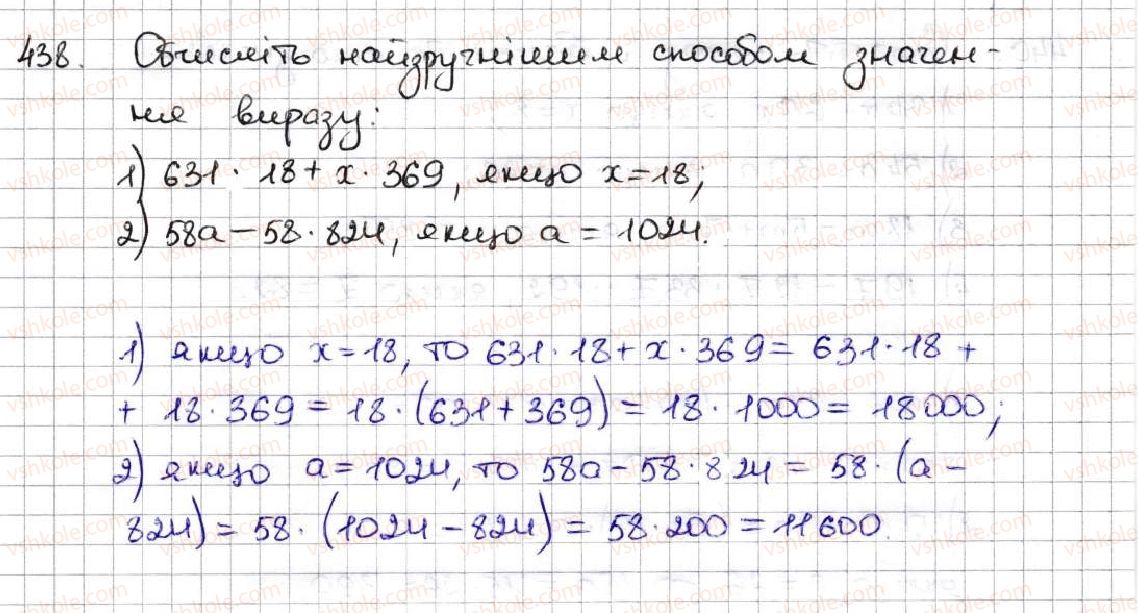 438. Обчисліть найзручнішим способом значен-
ня виразу:
1) 631 · 18 + x · 369, якщо x = 18;
2) 58a − 58 · 824, якщо a = 1024.
1) якщо x = 18, то 631 · 18 + x · 369 = 631 · 18 +
+ 18 · 369 = 18 · (631 + 369) = 18 · 1000 = 18000;
2) якщо a = 1024, то 58a − 58 · 824 = 58 · (a −
824) = 58 · (1024 − 824) = 58 · 200 = 11600.
vshkole.com